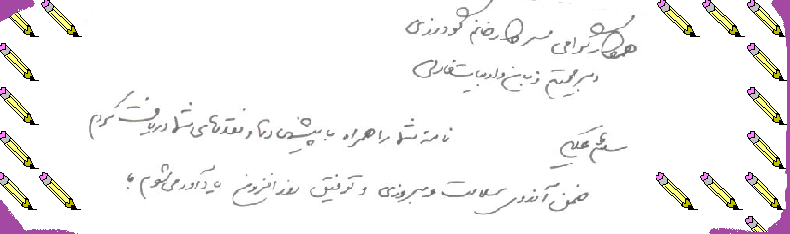 همکار گرامی سرکار خانم گودرزی
دبیر محترم زبان و ادبیات فارسی
سلام علیکم
نامه شما را همراه با پیشنهادها و نقدهای شما دریافت کردم
ضمن آرزوی سلامت و بهروزی و توفیق روز افزون یادآور می شوم با